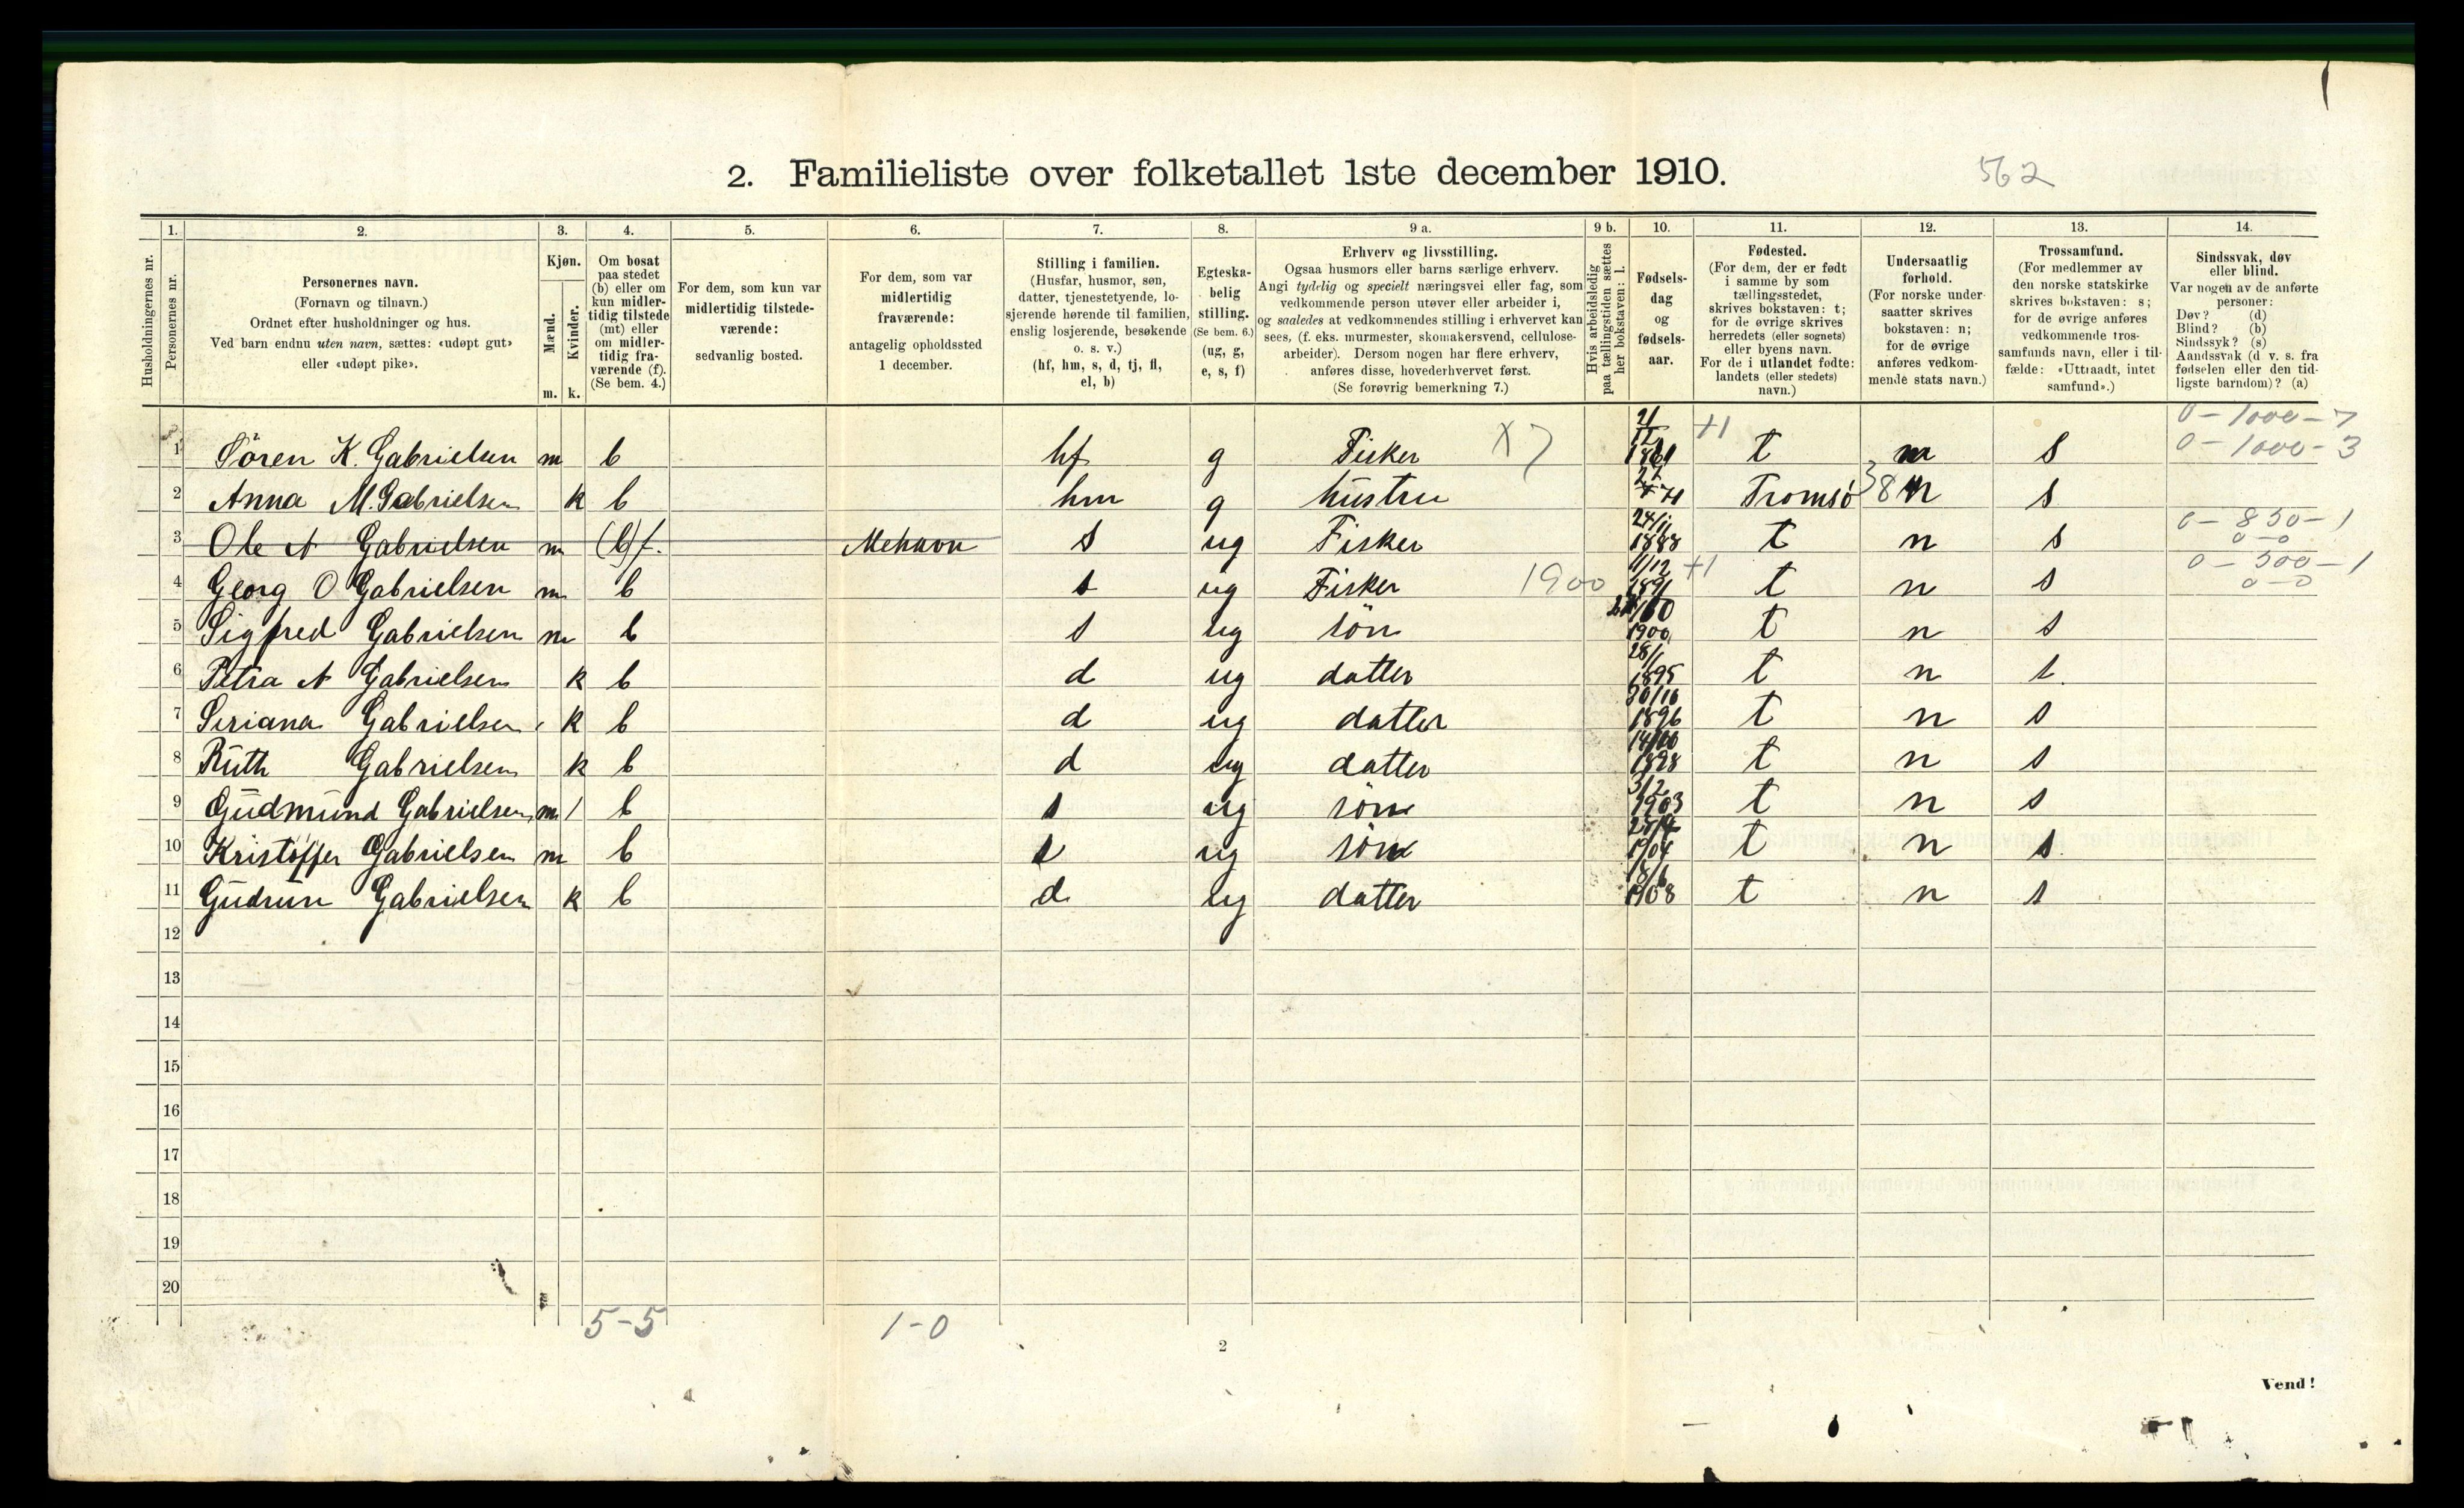 2. Familieliste over folketallet 1ste december 1910.
562
Husholdningernes nr.
1.
Personernes nr.
2.
Personernes navn.
(Fornavn og tilnavn.)
Ordnet efter husholdninger og hus.
Ved barn endnu uten navn, sættes: «udøpt gut»
eller «udøpt pike».
3.
Kjøn.
Mænd.
Kvinder.
m. k.
4.
Om bosat
paa stedet
(b) eller om
kun midler-
tidig tilstede
(mt) eller
om midler-
tidig fra-
værende (f).
(Se bem. 4.)
5.
For dem, som kun var
midlertidig tilstede-
værende:
sedvanlig bosted.
6.
For dem, som var
midlertidig
fraværende:
antagelig opholdssted
1 december.
7.
Stilling i familien.
(Husfar, husmor, søn,
datter, tjenestetyende, lo-
sjerende hørende til familien,
enslig losjerende, besøkende
o. s. v.)
(hf, hm, s, d, tj, fl,
el, b)
8.
Egteska-
belig
stilling.
(Se bem. 6.)
(ug, g,
e, s, f)
9 a.
Erhverv og livsstilling.
Ogsaa husmors eller barns særlige erhverv.
Angi tydelig og specielt næringsvei eller fag, som
vedkommende person utøver eller arbeider i,
og saaledes at vedkommendes stilling i erhvervet kan
sees, (f. eks. murmester, skomakersvend, cellulose-
arbeider). Dersom nogen har flere erhverv,
anføres disse, hovederhvervet først.
(Se forøvrig bemerkning 7.)
9 b.
Hvis arbeidsledig
paa tællingstiden sættes
her bokstaven: l.
10.
Fødsels-
dag
og
fødsels-
aar.
11.
Fødested.
(For dem, der er født
i samme by som
tællingsstedet,
skrives bokstaven: t;
for de øvrige skrives
herredets (eller sognets)
eller byens navn.
For de i utlandet fødte:
landets (eller stedets)
navn.)
12.
Undersaatlig
forhold.
(For norske under-
saatter skrives
bokstaven: n;
for de øvrige
anføres vedkom-
mende stats navn.)
13.
Trossamfund.
(For medlemmer av
den norske statskirke
skrives bokstaven: s;
for de øvrige anføres
vedkommende tros-
samfunds navn, eller i til-
fælde: «Uttraadt, intet
samfund».)
14.
Sindssvak, døv
eller blind.
Var nogen av de anførte
personer:
Døv? (d)
Blind? (b)
Sindssyk? (s)
Aandssvak (d. v. s. fra
fødselen eller den tid-
ligste barndom)? (a)
0 - 1000 - 7
1 Sören K. Gabrielsen m b hf g Fisker X7 +1 t n s 0 - 1000 - 3
2 Anna M. Gabrielsen k b hm g hustru Tromsö 38 n s
3 Ole A Gabrielsen m (b) f. Mehavn s ug Fisker 24/11 1888 t n s 0 - 850 - 1 0 - 0
4 Georg O Gabrielsen m b s ug Fisker 1900 11/12 1891 +1 t n s 0 - 300 - 1 0 - 0
5 Sigfred Gabrielsen m b s ug sön 1900 t n s
6 Petra A Gabrielsen k b d ug datter 28/1 1895 t n s.
7 Seriana Gabrielsen k b d ug datter 30/10 1896 t n s
8 Ruth Gabrielsen k b d ug datter 1898 t n s
9 Gudmund Gabrielsen m / b s ug sön 3/2 1903 t n s
10 Kristoffer Gabrielsen m b s ug sön 28/4 1904 t n s.
11 Gudrun Gabrielsen k b d ug datter 18/6 1908 t n s
12
13
14
15
16
17
18
19
20
5 - 5
1 - 0
2
Vend!